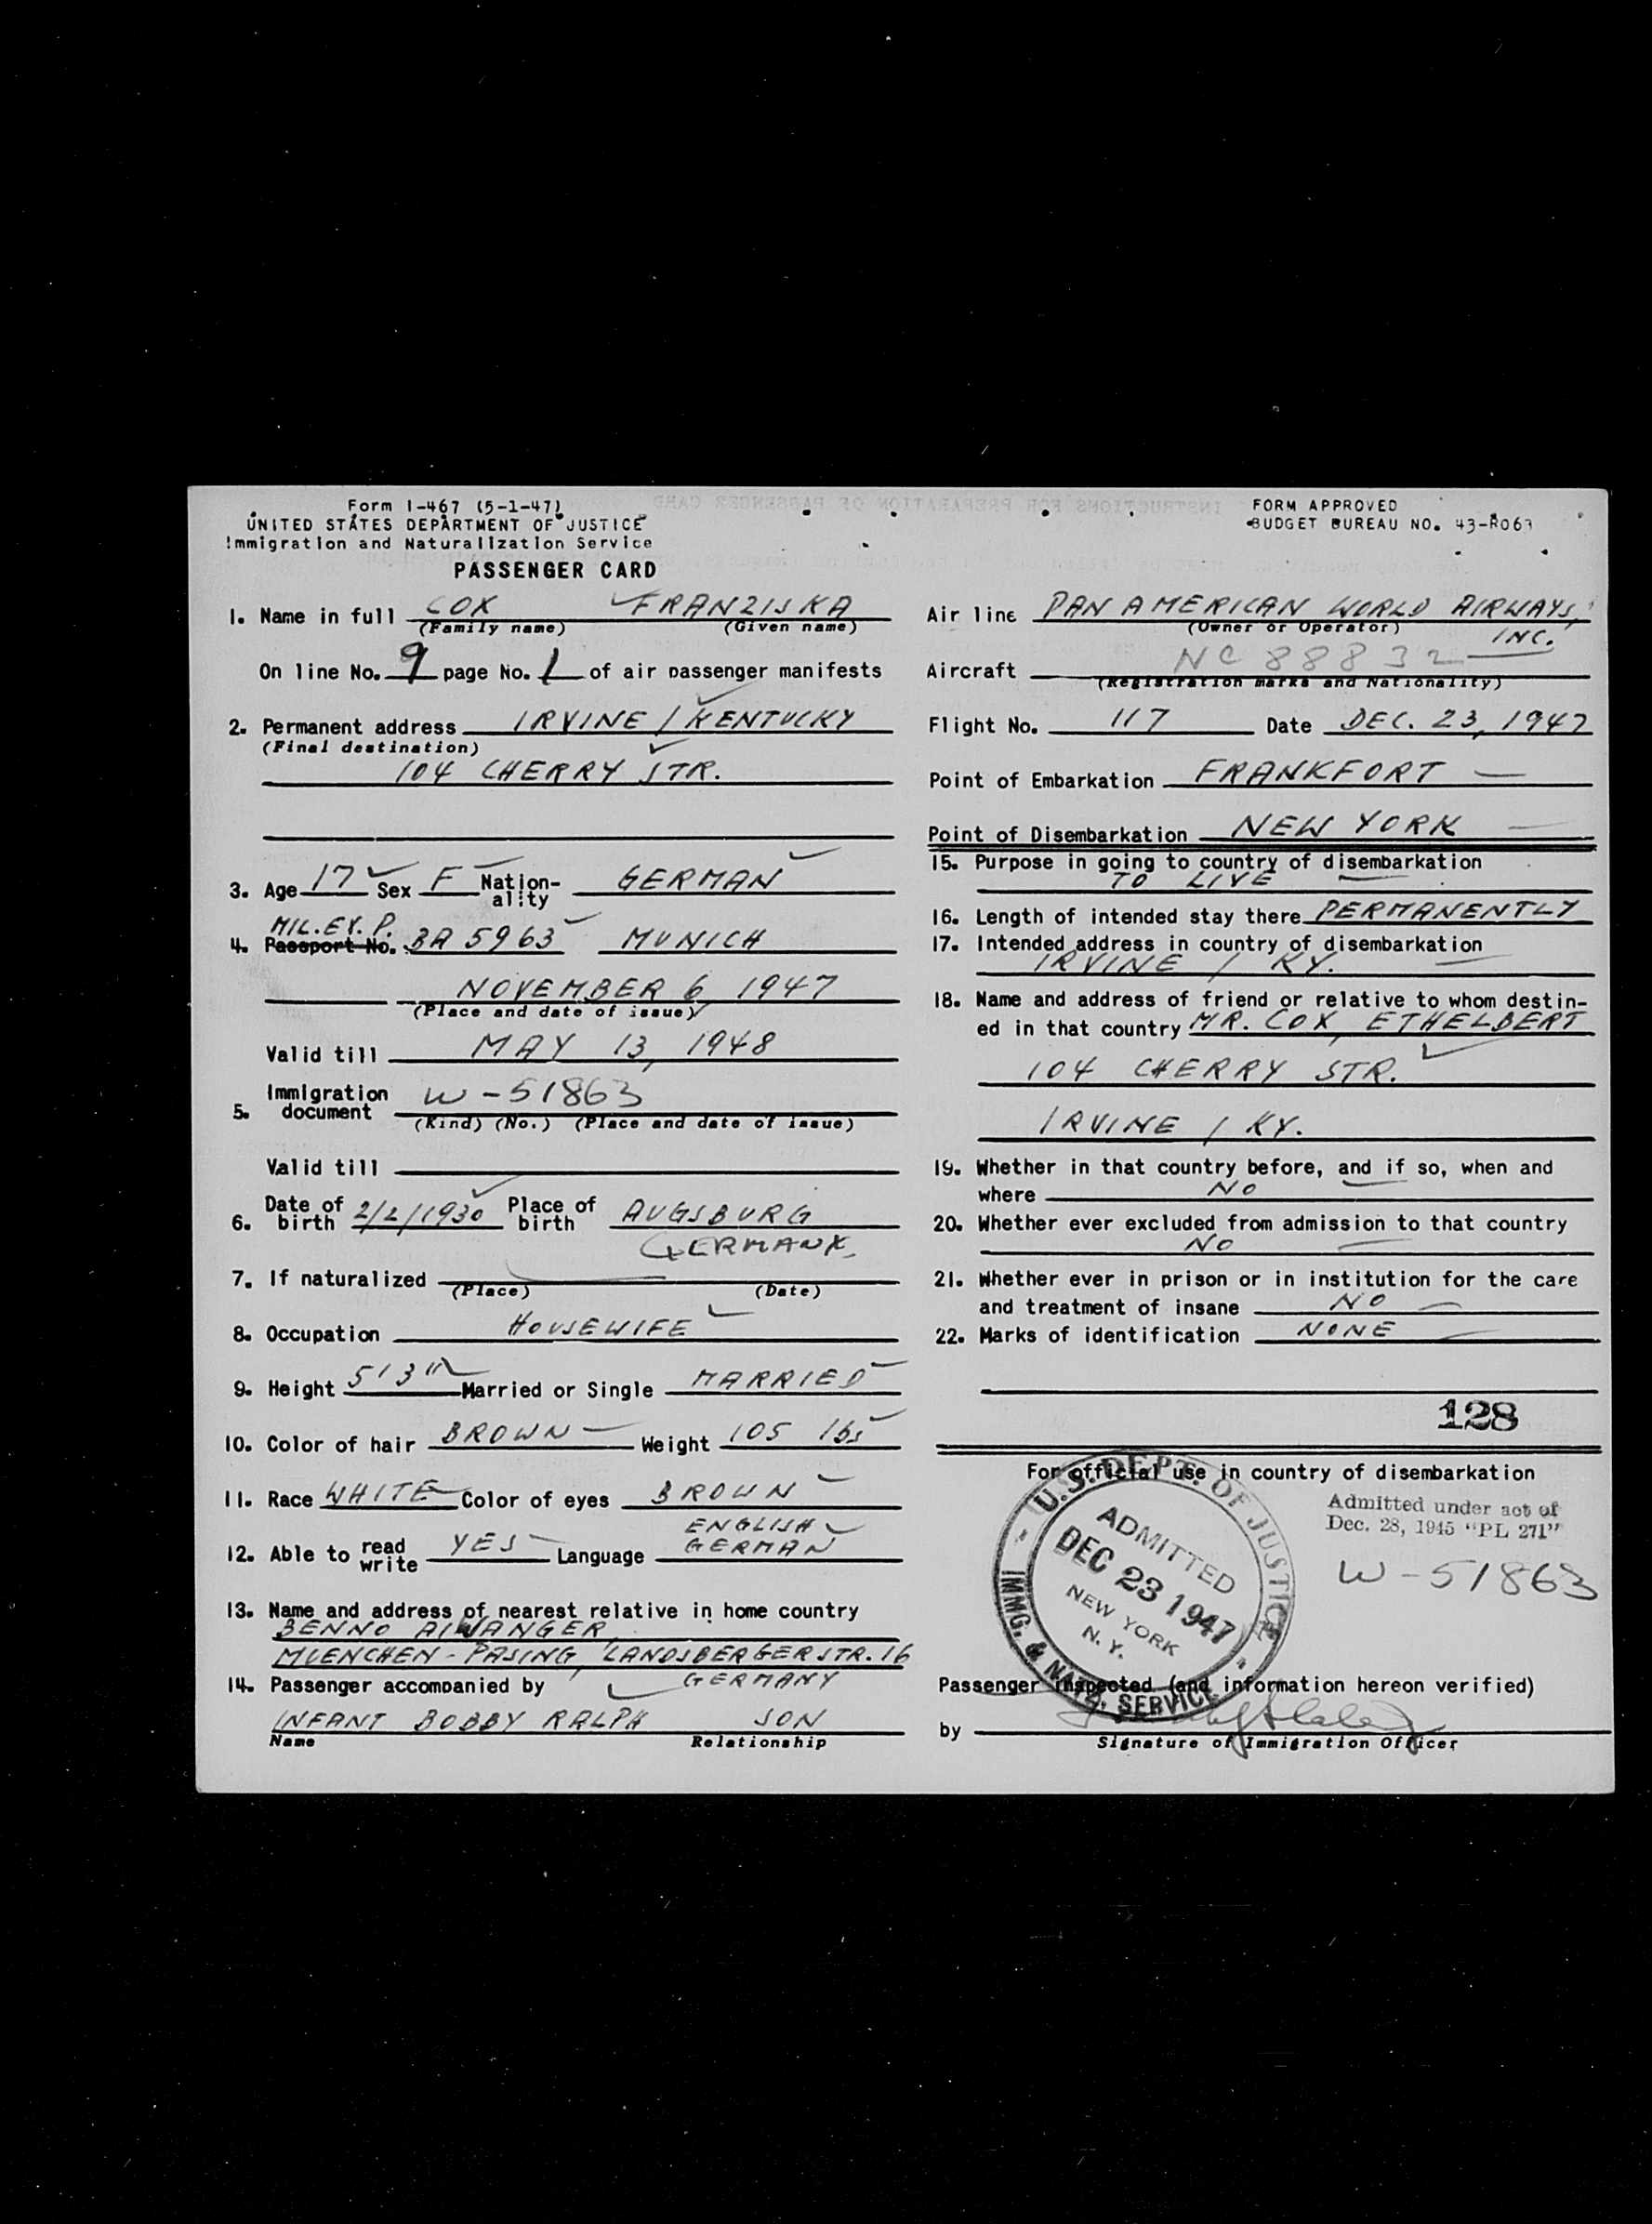 Form I-467 (5-1-47)
UNITED STATES DEPARTMENT OF JUSTICE
Immigration and Naturalization Service
PASSENGER CARD
FORM APPROVED
BUDGET BUREAU NO. 43-R063
1. Name in full COX FRANZISKA
(Family name) (Given name)
On line No. 9 page No. 1 of air passenger manifests
2. Permanent address IRVINE / KENTUCKY
(Final destination)
104 CHERRY STR.
3. Age 17 Sex F Nation-ality GERMAN
MIL.EX.P.
4. Passport No. BA 5963 MUNICH
NOVEMBER 6, 1947
(Place and date of issue)
Valid till MAY 13, 1948
5. Immigration document W-51863
(Kind) (No.) (Place and date of issue)
Valid till
6. Date of birth 2/2/1930 Place of birth AUGSBURG
GERMANY
7. If naturalized
(Place) (Date)
8. Occupation HOUSEWIFE
9. Height 5'3" Married or Single MARRIED
10. Color of hair BROWN Weight 105 lbs
11. Race WHITE Color of eyes BROWN
12. Able to read write YES Language ENGLISH
GERMAN
13. Name and address of nearest relative in home country
BENNO AIWANGER
MUENCHEN-PASING, LANDSBERGERSTR. 16
GERMANY
14. Passenger accompanied by
INFANT BOBBY RALPH SON
Name Relationship
Air line PAN AMERICAN WORLD AIRWAYS,
(Owner or Operator) INC.
Aircraft NC 88832
(Registration marks and Nationality)
Flight No. 117 Date DEC. 23, 1947
Point of Embarkation FRANKFORT
Point of Disembarkation NEW YORK
15. Purpose in going to country of disembarkation
TO LIVE
16. Length of intended stay there PERMANENTLY
17. Intended address in country of disembarkation
IRVINE / KY.
18. Name and address of friend or relative to whom destin-
ed in that country MR. COX, ETHELBERT
104 CHERRY STR.
IRVINE / KY.
19. Whether in that country before, and if so, when and
where NO
20. Whether ever excluded from admission to that country
NO
21. Whether ever in prison or in institution for the care
and treatment of insane NO
22. Marks of identification NONE
128
For official use in country of disembarkation
U.S. DEPT. OF JUSTICE
IMMG. & NATZ. SERVICE
ADMITTED
DEC 23 1947
NEW YORK
N.Y.
Admitted under act of
Dec. 28, 1945 "PL 271"
W-51863
Passenger inspected (and information hereon verified)
by
Signature of Immigration Officer